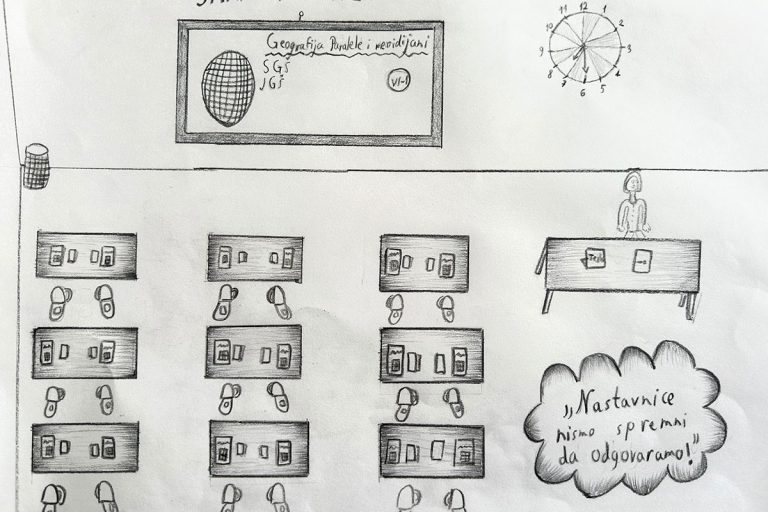 Geografija Paralele i meridijani
SGŠ
JGŠ
VI-1
11 12 1
10 2
9 3
8 4
7 6 5
„Nastavnice
nismo spremni
da odgovaramo!”